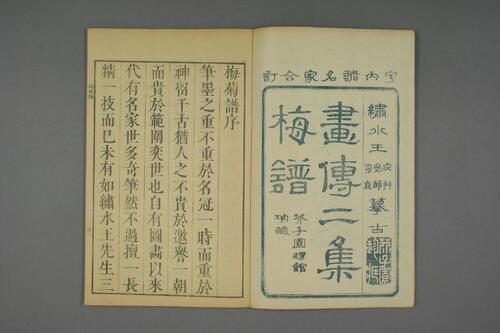 宇內諸名家合訂
繡水王
宓草
安節
司直
摹古
畫傳二集
梅譜
芥子園甥館
珍藏
梅菊譜序
筆墨之重不重於名冠一時而重於
神留千古猶人之不貴於邀譽一朝
而貴於範圍奕世也自有圖畵以來
代有名家世多奇筆然不過擅一長
精一技而已未有如繡水王先生三